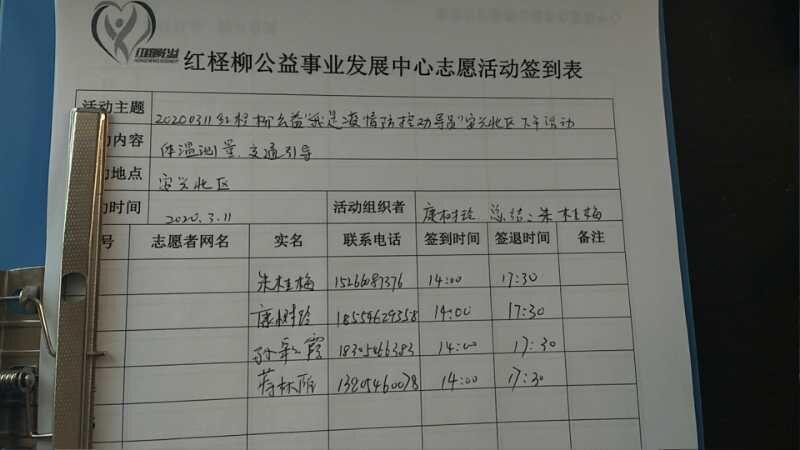 红柽柳公益
红柽柳公益事业发展中心志愿活动签到表
活动主题 20200311红柽柳公益"我是疫情防控劝导员"安兴北区下午活动
内容 体温测量、交通引导
地点 安兴北区
时间 2020.3.11 活动组织者 康树玲 总结:朱桂梅
号 志愿者网名 实名 联系电话 签到时间 签退时间 备注
朱桂梅 15266087376 14:00 17:30
康树玲 18554629358 14:00 17:30
孙彩霞 18305466383 14:00 17:30
蒋林 13205460078 14:00 17:30